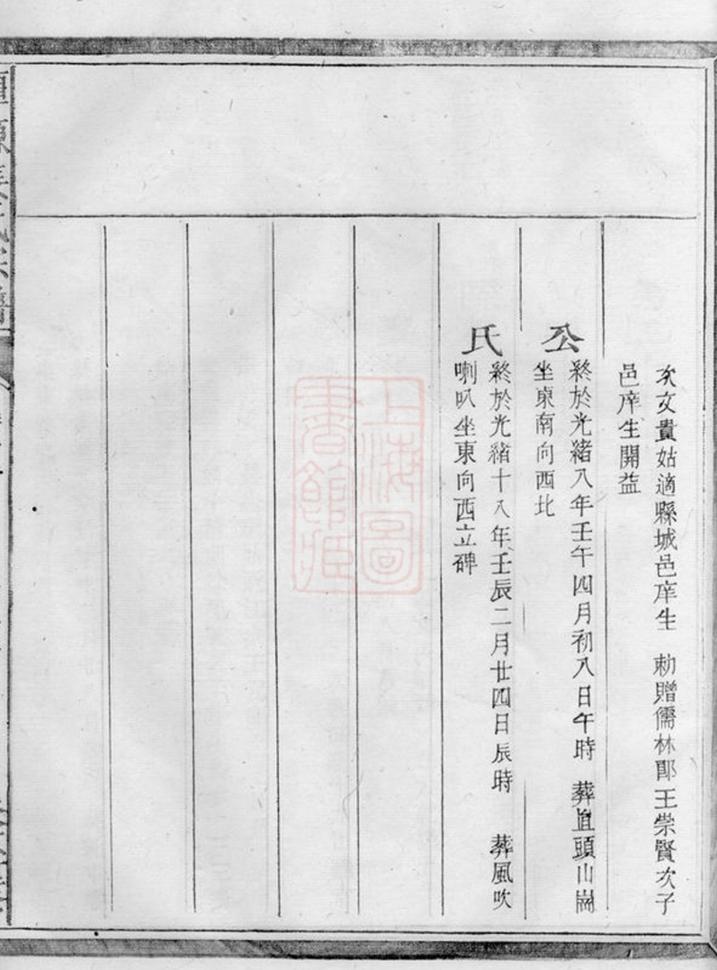 次女貴姑適縣城邑庠生 勅贈儒林郎王崇賢次子
邑庠生開益
公 終於光緒八年壬午四月初八日午時 葬直頭山崗
坐東南向西北
氏 終於光緒十八年壬辰二月廿四日辰時 葬風吹
喇叭坐東向西立碑
上海圖書館藏